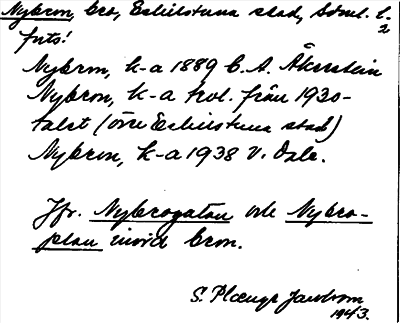 Nybron, bro, Eskilstuna stad, Södml. l.
2
futs!
Nybron, k-a 1889 C. A. Åkerstein
Nybron, k-a trol. från 1930-
talet (övre Eskilstuna stad)
Nybron, k-a 1938 V. Dale.
Jfr. Nybrogatan och Nybro-
plan invid bron.
S. Plænge Jacobson
1943.